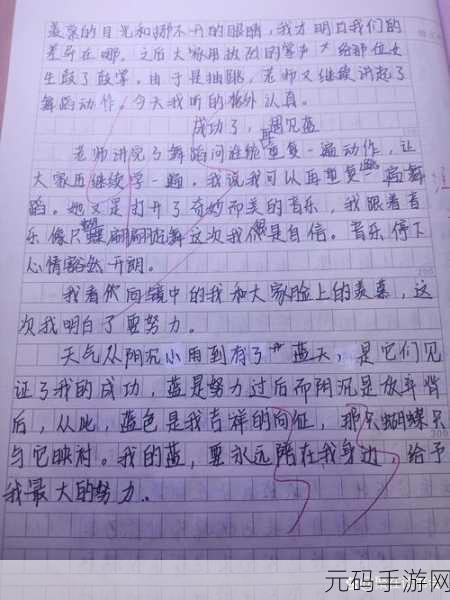 羡慕的目光和挪不开的眼睛，我才明白我们的
差异在哪。之后大家用热烈的掌声给那位女
生鼓了鼓掌。由于是抽跳，老师又继续讲起了
舞蹈动作。今天我听的格外认真。
成功了，遇见蓝
老师讲完了舞蹈问 重复一遍动作，让
大家再继续学一遍。我说我可以再重复一遍舞
蹈。她又是打开了奇妙而美的音乐，我跟着音
乐像只蝴蝶翩翩起舞这次我很是自信。音乐停下
心情豁然开朗。
我看 向镜中的我和大家脸上的羡慕，这
次我明白了要努力。
天气从阴沉小雨到有了蓝天，是它们见
证了我的成功，蓝是努力过后而阴沉是放弃背
后，从此，蓝色是我吉祥的向征，那只蝴蝶只
与它映衬。我的蓝，要永远陪在我身边，给予
我最大的努力。
300
元码手游网